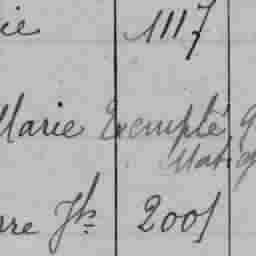 ie 1117
Marie Exempté
rre Jh 2001